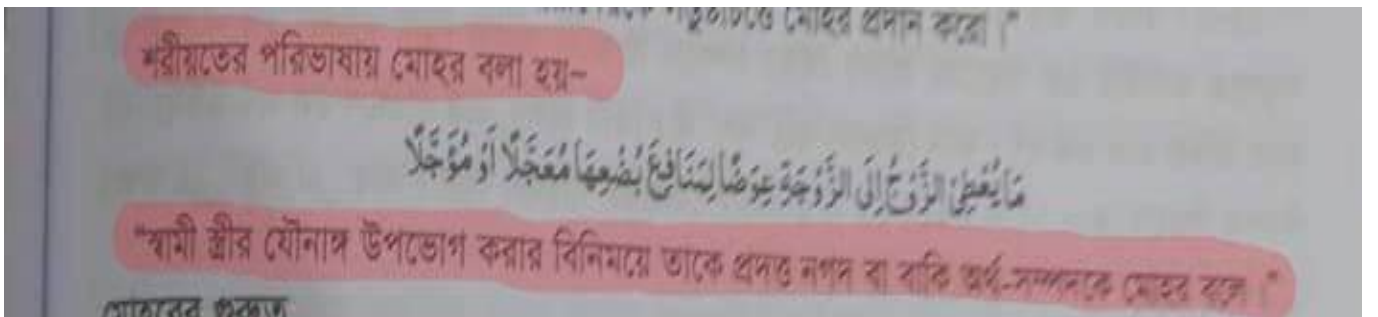 মোহর প্রদান করো।"
শরীয়তের পরিভাষায় মোহর বলা হয়-
مَا يُعْطِي الزَّوْجُ إِلَى الزَّوْجَةِ عِوَضًا لِمَنَافِعِ بُضْعِهَا مُعَجَّلًا أَوْ مُؤَجَّلًا
"স্বামী স্ত্রীর যৌনাঙ্গ উপভোগ করার বিনিময়ে তাকে প্রদত্ত নগদ বা বাকি অর্থ-সম্পদকে মোহর বলে।"